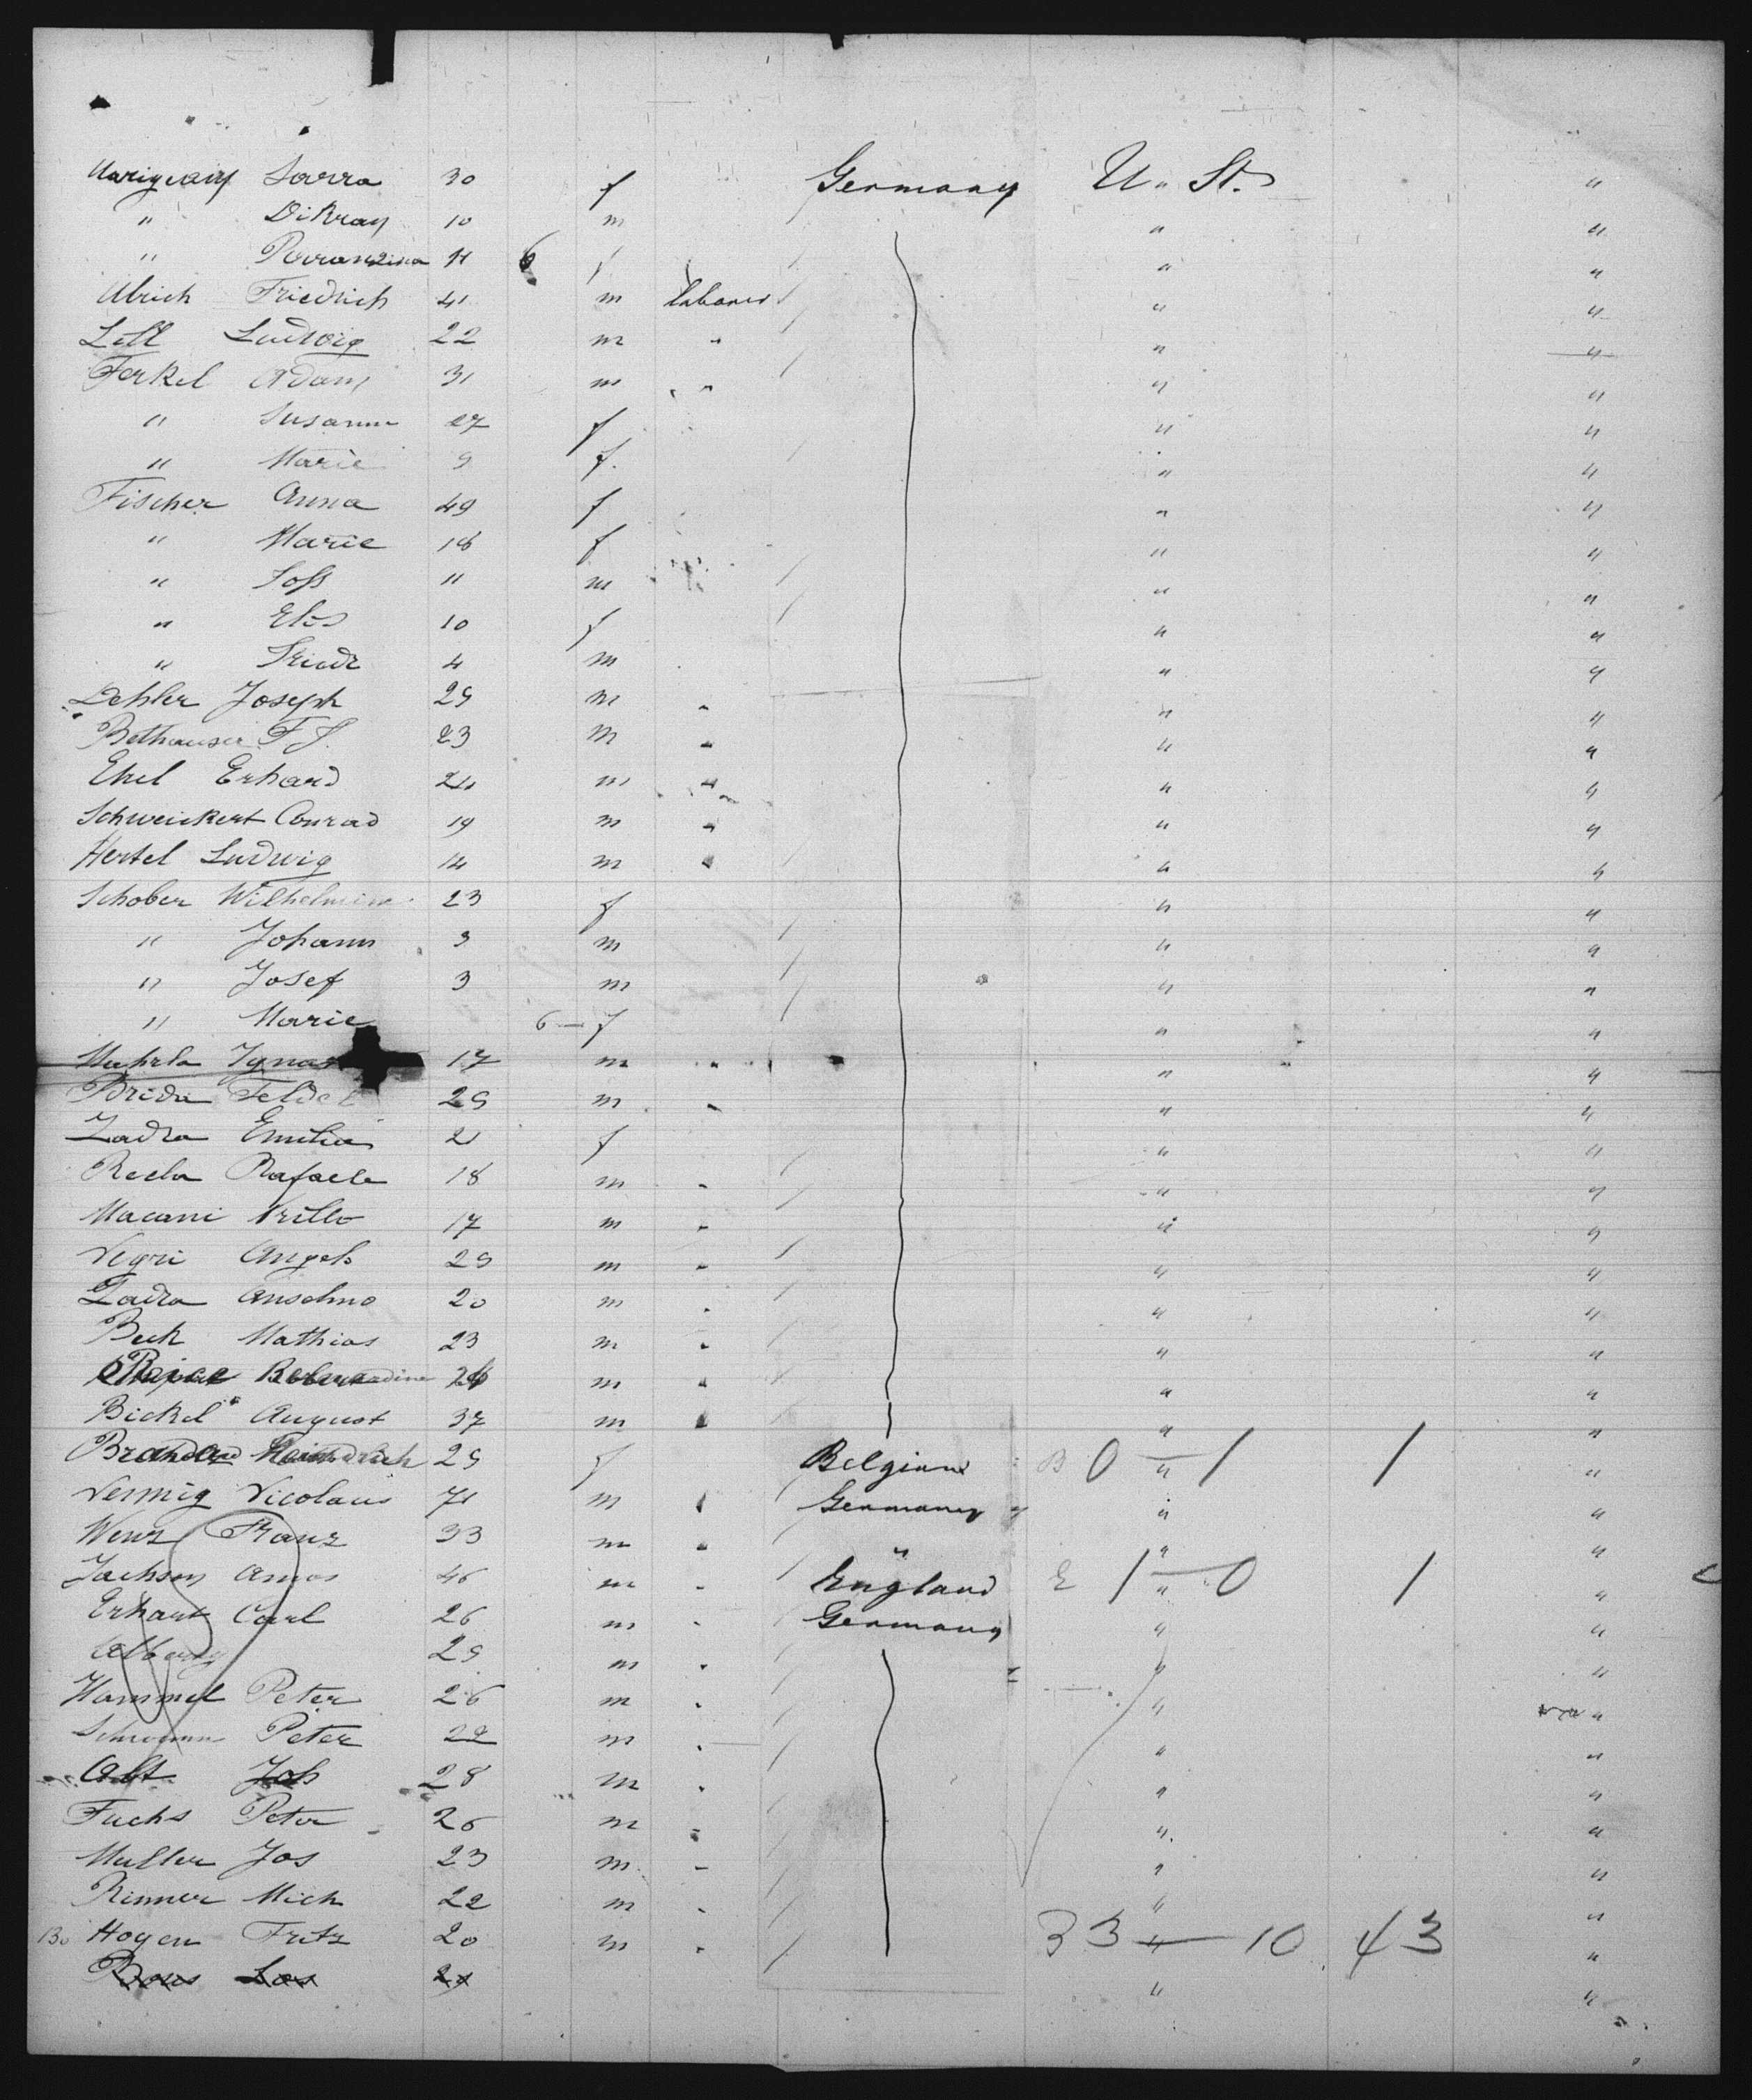 Sarra 30 f Germany U. St. "
" Dikran 10 m " "
" 11 6 f " "
Ulrich Friedrich 41 m laborer " "
Lell Ludwig 22 m " " "
Ferkel Adam 31 m " " "
" Susanna 27 f " "
" Marie 9 f. " "
Fischer Anna 49 f " "
" Marie 18 f " "
" 11 m " "
" Elis 10 f " "
" Friedr 4 m " "
Dehler Joseph 29 m " " "
Bethauser F J. 23 m " " "
Ehel Erhard 24 m " " "
Schweickert Conrad 19 m " " "
Hertel Ludwig 14 m " " "
Schober Wilhelmine 23 f " "
" Johann 9 m " "
" Josef 3 m " "
" Marie 6 - f " "
Ignas 17 m " " "
Brida 29 m " " "
Zadra Emilia 21 f " "
Recla Rafaele 18 m " " "
Macani 17 m " " "
Negri Angelo 29 m " " "
Zadra Anselmo 20 m " " "
Beck Mathias 23 m " " "
m " " "
Bickel August 37 m " " "
29 f Belgium B 0 - 1 " 1 "
Nicolaus 71 m " Germany " "
Wenz Franz 33 m " " " "
Jachson Amos 46 m " England E 1 - 0 " 1 "
Erhart Carl 26 m " Germany " "
29 m " " "
Hammel Peter 26 m " " "
Peter 22 m " " "
Alt Joh 28 m " " "
Fuchs Peter 26 m " " "
Muller Jos 23 m " " "
Rimmer Mich 22 m " " "
130 Hogen Fritz 20 m " 33 - 10 " 43 "
" "